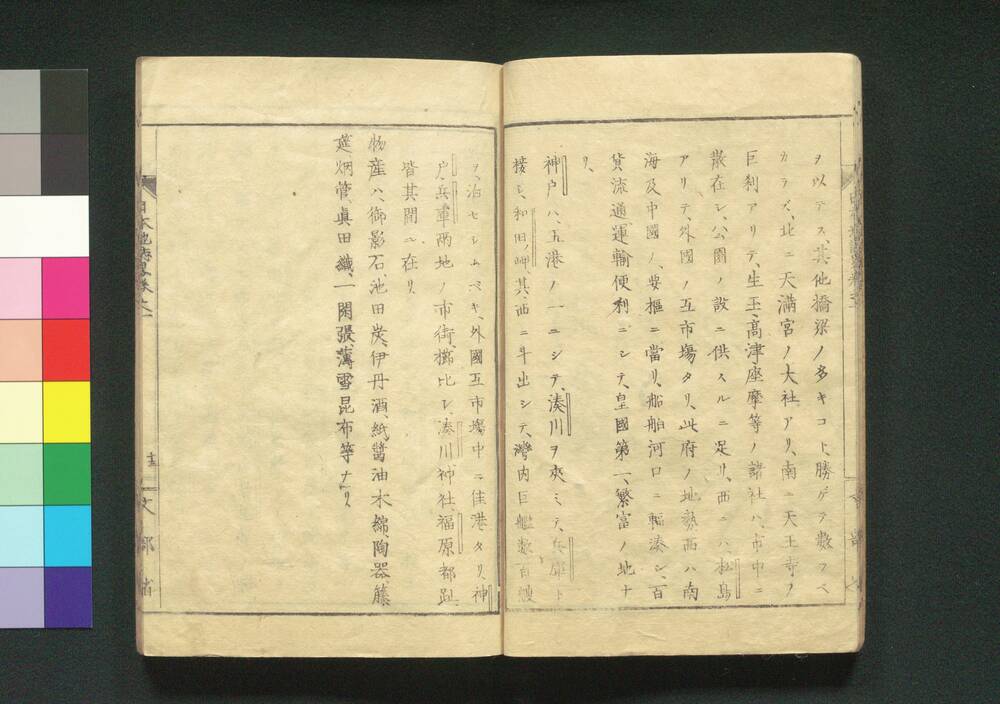 ヲ以テス、其他橋梁ノ多キコト勝ゲテ數フベ
カラズ、北ニ天滿宮ノ大社アリ、南ニ天王寺ノ
巨刹アリテ、生玉、高津、座摩等ノ諸社ハ、市中ニ
散在シ、公園ノ設ニ供スルニ足リ、西ニハ松島
アリテ、外國ノ互市場タリ、此府ノ地勢西ハ南
海及中國ノ、要樞ニ當リ、船舶河口ニ輻湊シ、百
貨流通運輸便利ニシテ、皇國第一、繁富ノ地ナ
リ、
神戸ハ、五港ノ一ニシテ、湊川ヲ夾ミ、テ、兵庫ト
接シ、和田ノ岬、其、西ニ斗出シテ、灣内巨艦數百艘
ヲ、泊セシムベキ、外國互市塲中ニ佳港タリ、神
戸、兵庫兩地ノ市街、櫛比シ、湊川神社、福原都趾、
皆其間ニ在リ、
物産ハ、御影石、池田炭、伊丹酒、紙、醤油、木綿、陶器、藤
莚、烟管、眞田織、一閑張、薄雪昆布等ナリ
日本地誌略卷之一
十二
文部省